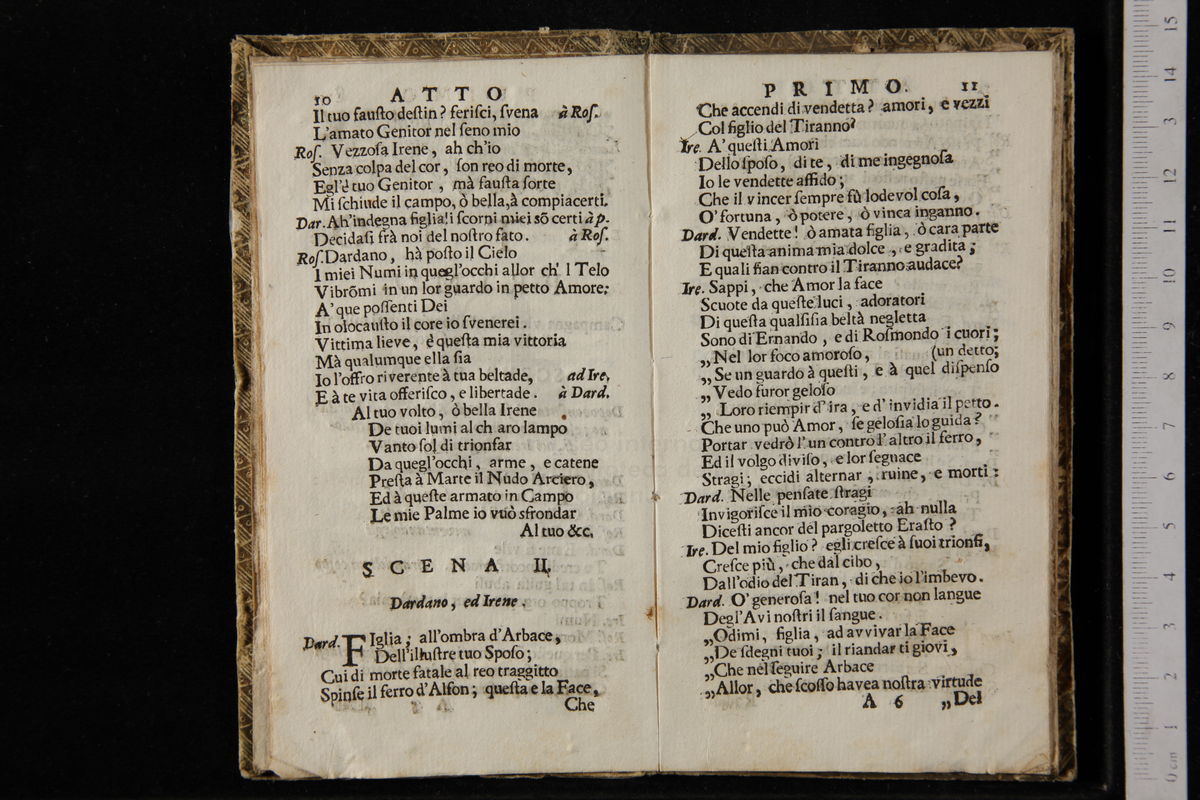 10 ATTO
Il tuo fauſto deſtin? feriſci, ſvena à Roſ.
L'amato Genitor nel ſeno mio
Roſ. Vezzoſa Irene, ah ch'io
Senza colpa del cor, ſon reo di morte,
Egl'è tuo Genitor, mà fauſta ſorte
Mi ſchiude il campo, ò bella, à compiacerti.
Dar. Ah'indegna figlia! i ſcorni miei sõ certi à p.
Decidaſi frà noi del noſtro fato. à Roſ.
Roſ. Dardano, hà poſto il Cielo
I miei Numi in quegl'occhi allor ch' l Telo
Vibrõmi in un lor guardo in petto Amore:
A' que poſſenti Dei
In olocauſto il core io ſvenerei.
Vittima lieve, è queſta mia vittoria
Mà qualumque ella ſia
Io l'offro riverente à tua beltade, ad Ire.
E à te vita offeriſco, e libertade. à Dard.
Al tuo volto, ò bella Irene
De tuoi lumi al ch aro lampo
Vanto ſol di trionfar
Da quegl'occhi, arme, e catene
Preſta à Marte il Nudo Arciero,
Ed à queſte armato in Campo
Le mie Palme io vuò sfrondar
Al tuo &c.
SCENA II.
Dardano, ed Irene.
Dard. FIglia; all'ombra d'Arbace,
Dell'illuſtre tuo Spoſo;
Cui di morte fatale al reo traggitto
Spinſe il ferro d'Alfon; queſta e la Face,
Che
PRIMO. 11
Che accendi di vendetta? amori, e vezzi
Col figlio del Tiranno?
Ire. A' queſti Amori
Dello ſpoſo, di te, di me ingegnoſa
Io le vendette affido;
Che il vincer ſempre fù lodevol coſa,
O' fortuna, ò potere, ò vinca inganno.
Dard. Vendette! ò amata figlia, ò cara parte
Di queſta anima mia dolce, e gradita;
E quali fian contro il Tiranno audace?
Ire. Sappi, che Amor la face
Scuote da queſte luci, adoratori
Di queſta qualſiſia beltà negletta
Sono di Ernando, e di Roſmondo i cuori;
„Nel lor foco amoroſo, (un detto;
„Se un guardo à queſti, e à quel diſpenſo
„Vedo furor geloſo
„ Loro riempir d'ira, e d'invidia il petto.
Che uno può Amor, ſe geloſia lo guida?
Portar vedrò l'un contro l'altro il ferro,
Ed il volgo diviſo, e lor ſeguace
Stragi; eccidi alternar, ruine, e morti:
Dard. Nelle penſate ſtragi
Invigoriſce il mio coragio, ah nulla
Diceſti ancor del pargoletto Eraſto?
Ire. Del mio figlio? egli creſce à ſuoi trionfi,
Creſce più, che dal cibo,
Dall'odio del Tiran, di che io l'imbevo.
Dard. O' generoſa! nel tuo cor non langue
Degl'Avi noſtri il ſangue.
„Odimi, figlia, ad avvivar la Face
„De ſdegni tuoi; il riandar ti giovi,
„Che nel ſeguire Arbace
„Allor, che ſcoſſo havea noſtra virtude
A 6 „Del